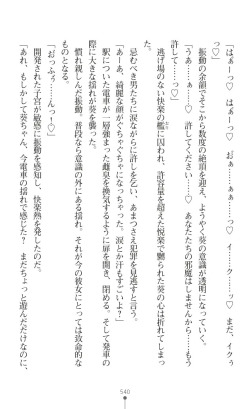 「はぁーっ♡　はぁーっ♡　おぁ……ぁぁーっ♡　イ……ク……っ♡　まだ、イクぅ……っ♡」
振動の余韻でそこから数度の絶頂を迎え、ようやく葵の意識が透明になっていく。
「うあ……ぁ……♡　許してください……♡　あなたたちの邪魔はしませんから……もう許して……っ♡」
逃げ場のない快楽の檻に囚われ、許容量を超えた悦楽で嬲られた葵の心は折れてしまった。
忌むべき男たちに涙ながらに許しを請い、あまつさえ犯罪を見逃すと言う。
「あーあ、綺麗な顔がぐちゃぐちゃになっちゃった。涙とか汗もすごいよ？」
駅についた電車が一層強まった雌臭を換気するように扉を開き、閉める。そして発車の際に大きな揺れが葵を襲った。
慣れ親しんだ振動。普段なら意識の外にある揺れ。それが今の彼女にとっては致命的なものとなる。
「おっふぅ……んっ！♡」
開発された子宮が敏感に振動を感知し、快楽熱を発したのだ。
「あれ、もしかして葵ちゃん、今電車の揺れで感じた？　まだちょっと遊んだだけなのに、
540